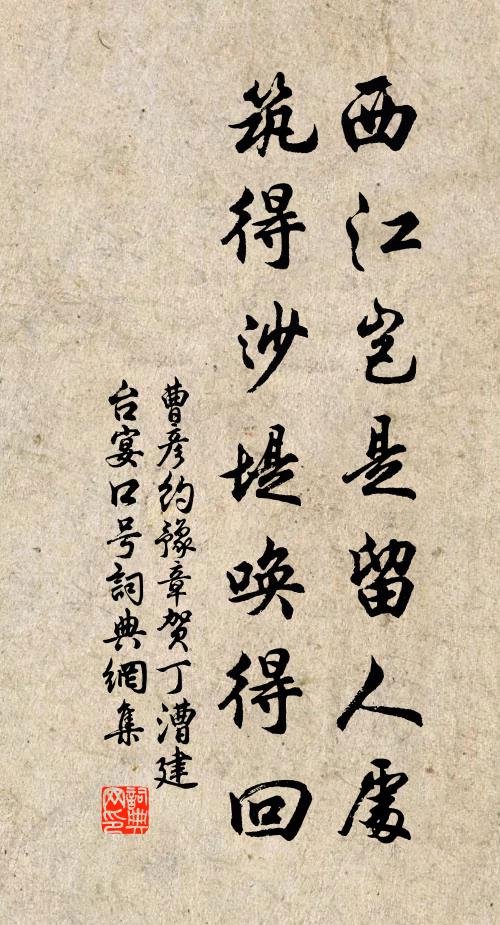 西江岂是留人處
筑得沙堤唤得回
曹彦约豫章贺丁漕建
台宴口号詞典網集
詞典网印